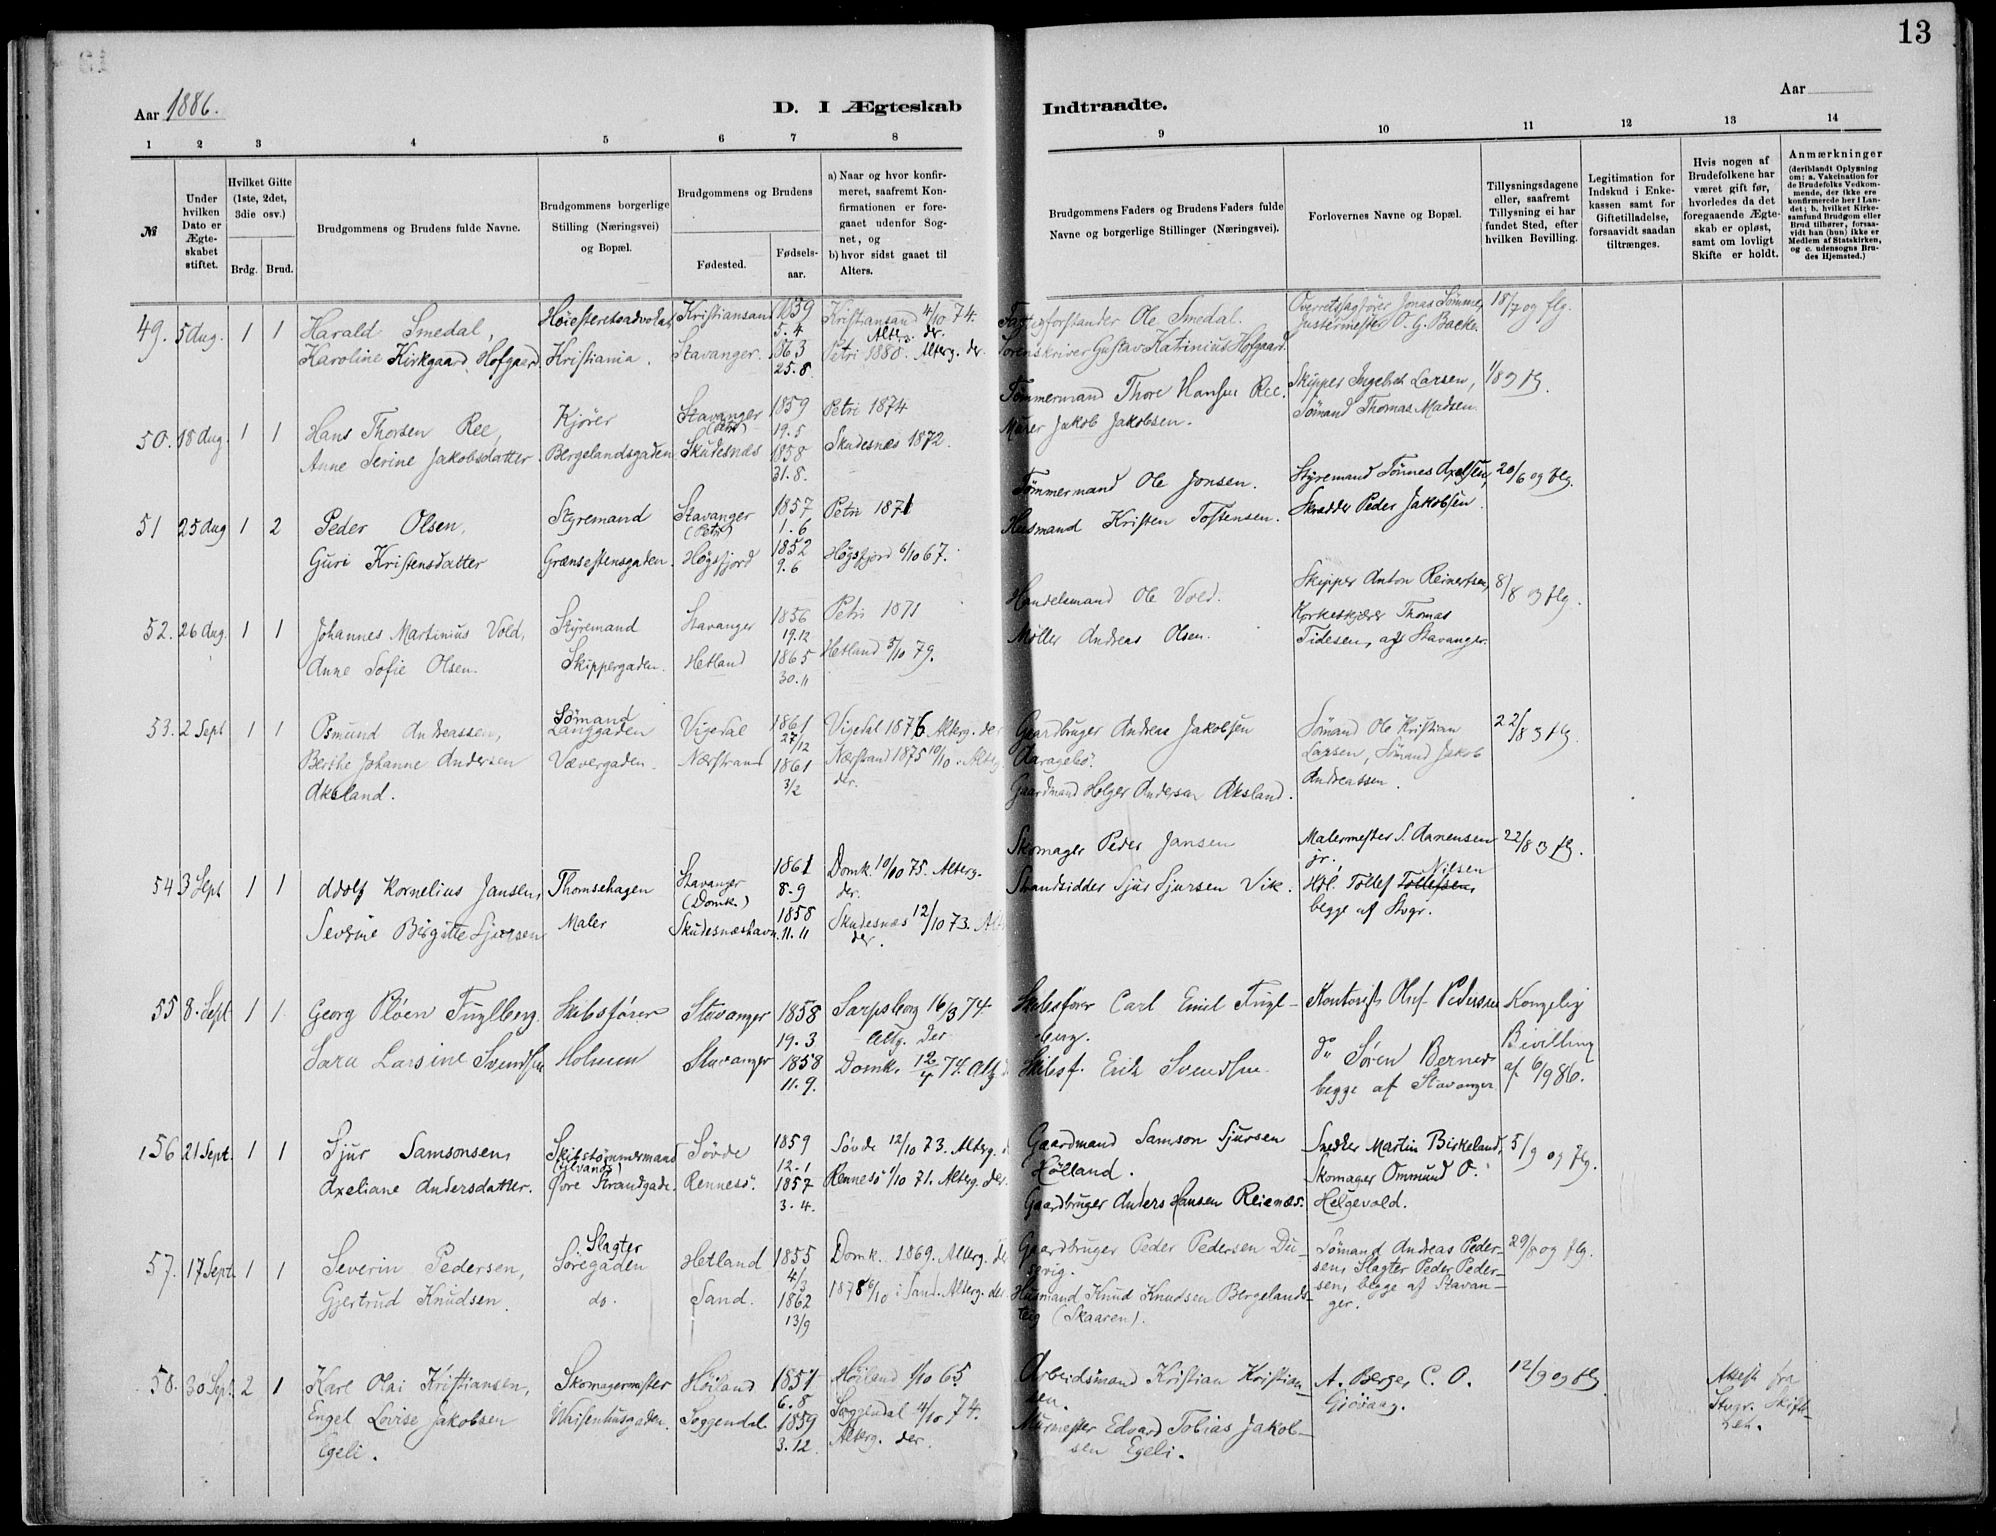 13
Aar 1886.
D. I Ægteskab
Indtraadte.
Aar
1 2 3 4 5 6 7 8 9 10 11 12 13 14
№
Under hvilken Dato er Ægteskabet stiftet.
Hvilket Gifte (1ste, 2det, 3die osv.)
Brdg. Brud.
Brudgommens og Brudens fulde Navne.
Brudgommens borgerlige Stilling (Næringsvei) og Bopæl.
Brudgommens og Brudens
Fødested.
Fødselsaar.
a) Naar og hvor konfirmeret, saafremt Konfirmationen er foregaaet udenfor Sognet, og
b) hvor sidst gaaet til Alters.
Brudgommens Faders og Brudens Faders fulde Navne og borgerlige Stillinger (Næringsvei).
Forlovernes Navne og Bopæl.
Tillysningsdagene eller, saafremt Tillysning ei har fundet Sted, efter hvilken Bevilling.
Legitimation for Indskud i Enkekassen samt for Giftetilladelse, forsaavidt saadan tiltrænges.
Hvis nogen af Brudefolkene har været gift før, hvorledes da det foregaaende Ægteskab er opløst, samt om lovligt Skifte er holdt.
Anmærkninger
(deriblandt Oplysning om: a. Vakcination for de Brudefolks Vedkommende, der ikke ere konfirmerede her i Landet; b. hvilket Kirkesamfund Brudgom eller Brud tilhører, forsaavidt han (hun) ikke er Medlem af Statskirken, og c. udensogns Brudes Hjemsted.)
49. 5 Aug. 1 1 Harald Smedal, Høiesteretsadvokat Kristiansand 1859 5.4 Kristiansand 4/10 74. Alterg. der. Ole Smedal. Overretssagfører Jonas Sømme, 18/7 og flg.
Karoline Kirkgaard Hofgaard Kristiania. Stavanger. 1863 25.8. Petri 1880. Alterg. der. Sorenskriver Gustav Katrinius Hofgaard. Justermester O. G. Backe.
50. 18 Aug. 1 1 Hans Thorsen Ree, Kjører Stavanger (Petri) 1859 19.5 Petri 1874 Tømmermand Thore Hansen Ree. Skipper Ingebret Larsen, 1/8 o flg.
Anne Serine Jakobsdatter. Bergelandsgaden Skudesnæs 1858 31.8. Skudesnæs 1872. Murer Jakob Jakobsen. Sømand Thomas Madsen.
51 25 Aug 1 2 Peder Olsen, Styremand Stavanger (Petri) 1857 1.6 Petri 1871 Tømmermand Ole Jonsen. Styremand Tönnes Axelsen, 20/6 og flg.
Guri Kristensdatter Grænsestensgaden. Høgsfjord 1852 9.6 Høgsfjord 6/10 67. Husmand Kristen Tostensen. Skrædder Peder Jakobsen.
52. 26 Aug. 1 1 Johannes Martinius Vold, Styremand Stavanger 1856 19.12 Petri 1871 Handelsmand Ole Vold. Skipper Anton Reinertsen, 8/8 o flg.
Anne Sofie Olsen. Skippergaden. Hetland 1865 30.11 Hetland 5/10 79. Møller Andreas Olsen. Thomas
Tidesen, af Stavanger.
53. 2 Sept 1 1 Osmund Andreassen, Sømand Langgaden Vigedal 1861 27/12 Vigedal 1876. Alterg. der Gaardbruger Andreas Jakobsen Sømand Ole Kristian 22/8 o flg.
Berthe Johanne Andersen Vævergaden. Nærstrand 1861 3/2 Nærstrand 1875 10/10. Alterg. der. Larsen, Sømand Jakob
Aksland. Gaardmand Holger Andersen Aksland. Andreassen.
54 3 Sept 1 1 Adolf Kornelius Jansen, Thomsehagen Stavanger (Domk.) 1861 8.9 Domk. 10/10 75. Alterg. der. Skomager Peder Jansen Malermester S. Aanensen jr. 22/8 o flg.
Severine Birgitte Sjursen Maler Skudesnæshavn. 1858 11.11 Skudesnæs 12/10 73. Alt der. Strandsidder Sjur Sjursen Vik. Tollef Tollefsen, Nilsen
begge af Stvgr.
55 8. Sept 1 1 Georg Ploen Fuglberg. Skibsfører Stavanger 1858 19.3 Sarpsborg 16/3 74 Altg. der Skibsfører Carl Emil Fuglberg. Kontorist Oluf Pedersen Kongelig
Sara Larsine Svendsen Holmen Stavanger 1858 11.9. Domk. 12/4 74. Altg Skibsf. Erik Svendsen. do Søren Berner Bevilling
begge af Stavanger af 6/9 86.
56 21 Sept. 1 1 Sjur Samsonsen, Skibstømmermand (tilvands) Søvde 1859 12.1 Søvde 12/10 73. Alterg. Gaardmand Samson Sjursen Snedker Martin Birkeland, 5/9 og flg.
Axeliane Andersdatter. Øvre Strandgade. Rennesø. 1857 3.4. Rennesø 1/10 71. Alterg. der. Hølland. Skomager Ommund O.
Gaardbruger Anders Hansen Reienæs. Helgevold.
57. 17 Sept. 1 1 Severin Pedersen, Slagter Søregaden Hetland 1855 4/3 Domk. 1869. Alterg. der Gaardbruger Peder Pedersen Dusevig. Sømand Andreas Pedersen, Slagter Peder Pedersen, begge af Stavanger. 29/8 og flg.
Gjertrud Knudsen. do. Sand. 1862 13/9 1878 6/10 i Sand. Alterg. der Husmand Knud Knudsen Bergelandsteig (Skaaren).
58. 30 Sept. 2 1 Karl Olai Kristiansen, Skomagermester Höiland 1851 6.8 Höiland 1/10 65 Arbeidsmand Kristian Kristiansen. A. Berger C. O. 12/9 og flg Attest fra
Engel Lovise Jakobsen Waisenhusgaden. Soggendal 1859 3.12. Soggendal 4/10 74. Murmester Edvard Tobias Jakobsen Egeli. Giövaag. Stvgr. Skifteret.
Egeli. Alterg. der.